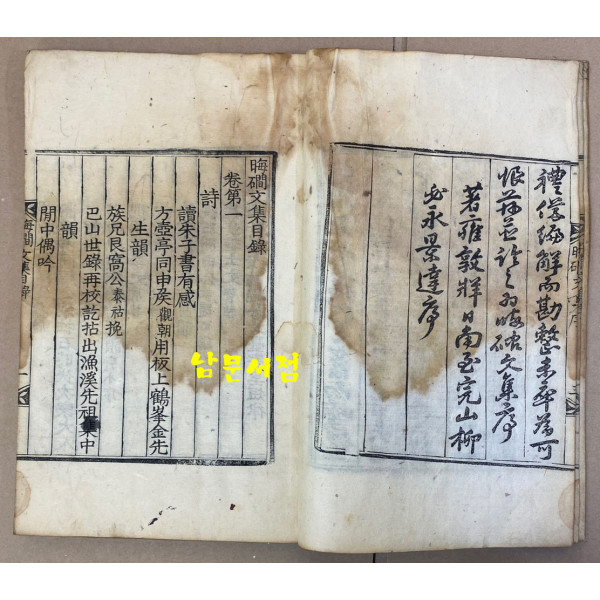 禮儀編解而勘整未卒爲可
恨茲並論之以爲晦磵文集序
著雍敦牂日南至完山柳
必永景達序
晦磵文集序
晦磵文集目錄
卷第一
詩
讀朱子書有感
方壺亭同申矦觀朝用板上鶴峯金先
生韻
族兄艮窩公泰祜挽
巴山世錄再校訖拈出漁溪先祖集中
韻
閒中偶吟
晦磵文集目錄
一
남문서점